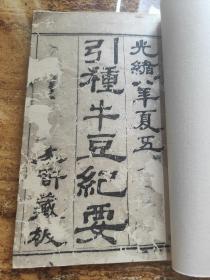 光緒八年夏五
引種牛豆紀要
許藏板